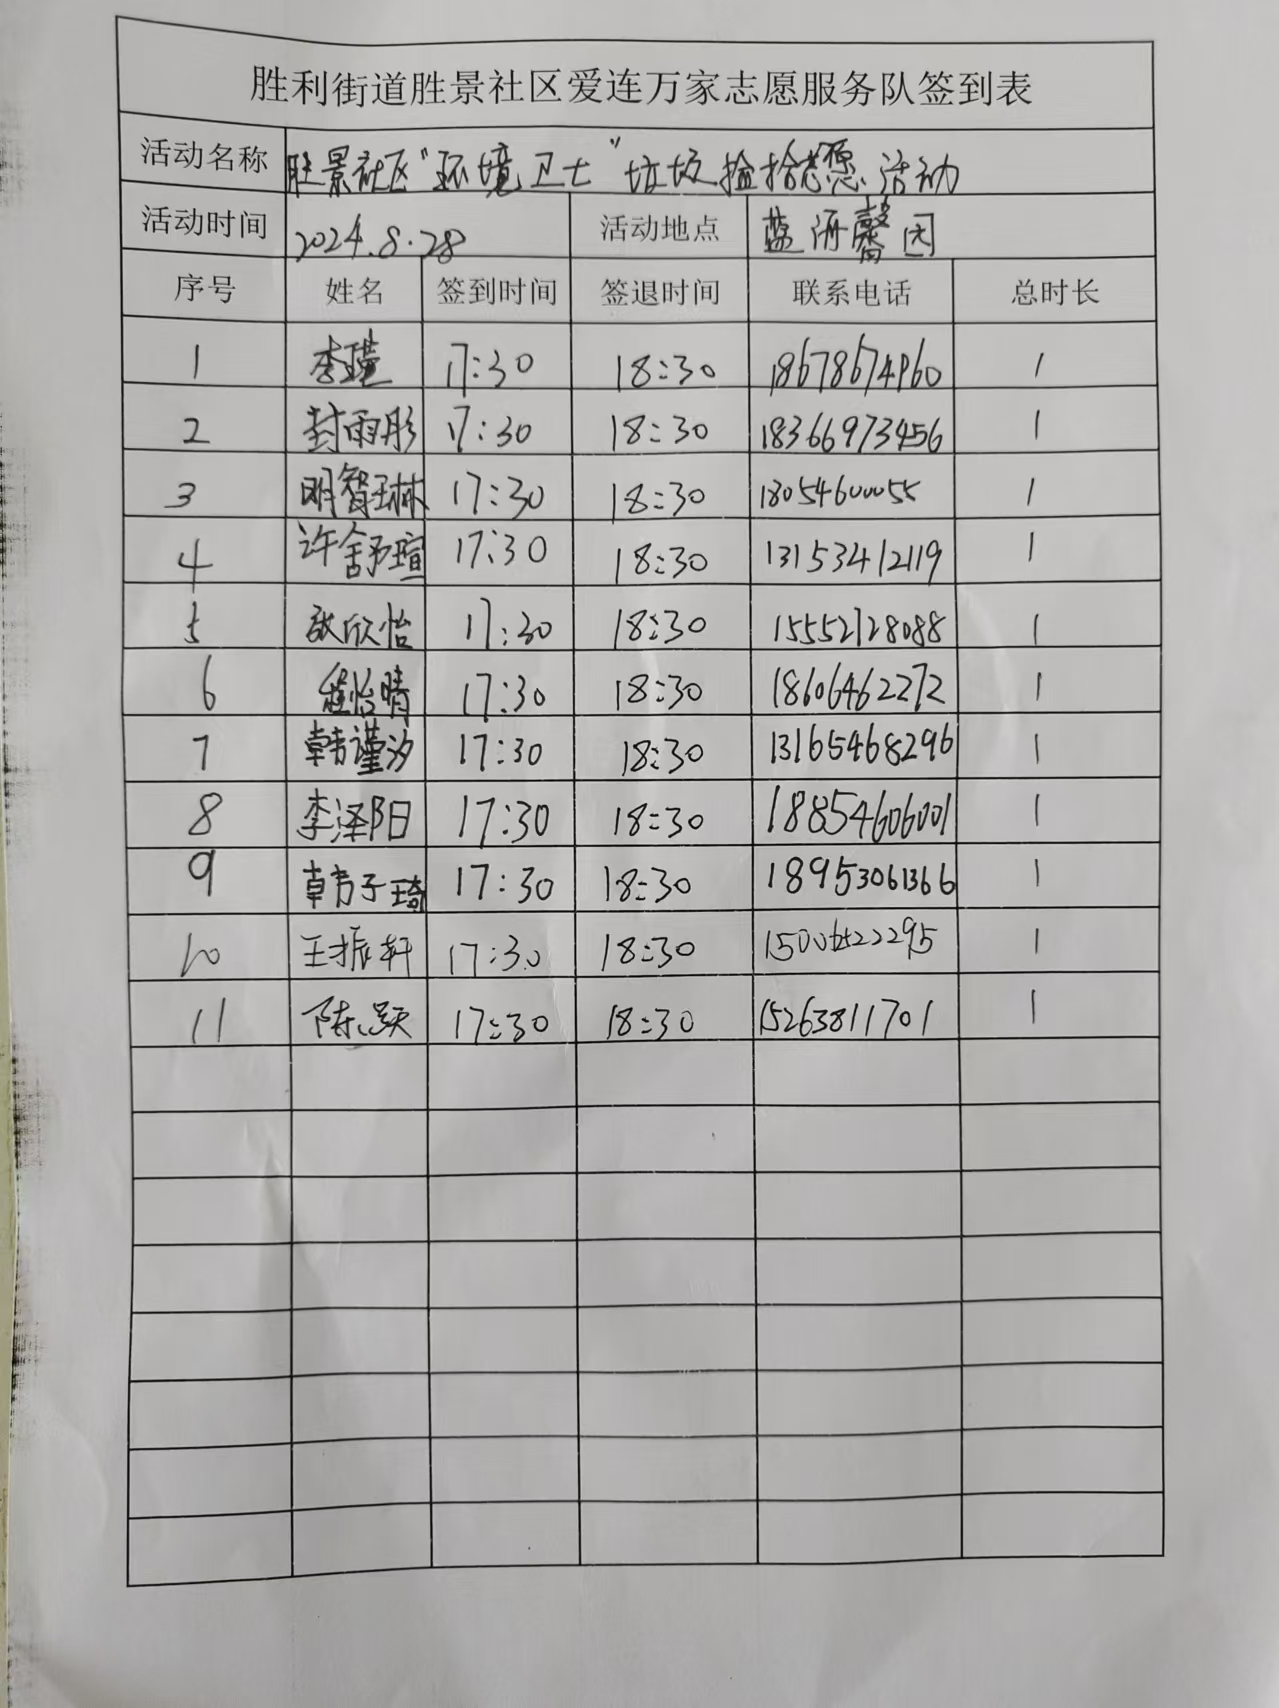 胜利街道胜景社区爱连万家志愿服务队签到表
活动名称 胜景社区“环境卫士”垃圾捡拾志愿活动
活动时间 2024.8.28 活动地点 蓝海馨园
序号 姓名 签到时间 签退时间 联系电话 总时长
1 李瑾 17:30 18:30 18678674960 1
2 封雨彤 17:30 18:30 18366973456 1
3 明智琳 17:30 18:30 18054600055 1
4 许舒瑄 17:30 18:30 13153412119 1
5 欣怡 17:30 18:30 15552128088 1
6 怡晴 17:30 18:30 18606462272 1
7 韩谨汐 17:30 18:30 13165468296 1
8 李泽阳 17:30 18:30 18854606001 1
9 韩子琦 17:30 18:30 18953061366 1
10 王振轩 17:30 18:30 1
11 陈思 17:30 18:30 15263811701 1